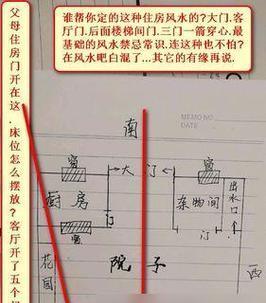 父母住房门开在这.床位怎么摆放?客厅开了五个门
谁帮你定的这种住房风水的?大门.客
厅门.后面楼梯间门.三门一箭穿心.最
基础的风水禁忌常识.连这种也不怕?
在风水吧白混了...其它的有缘再说.
MEMO NO.
DATE
南
窗
大门
窗
厨房
杂物间
出水口
门
门
窗
花园
院子
西